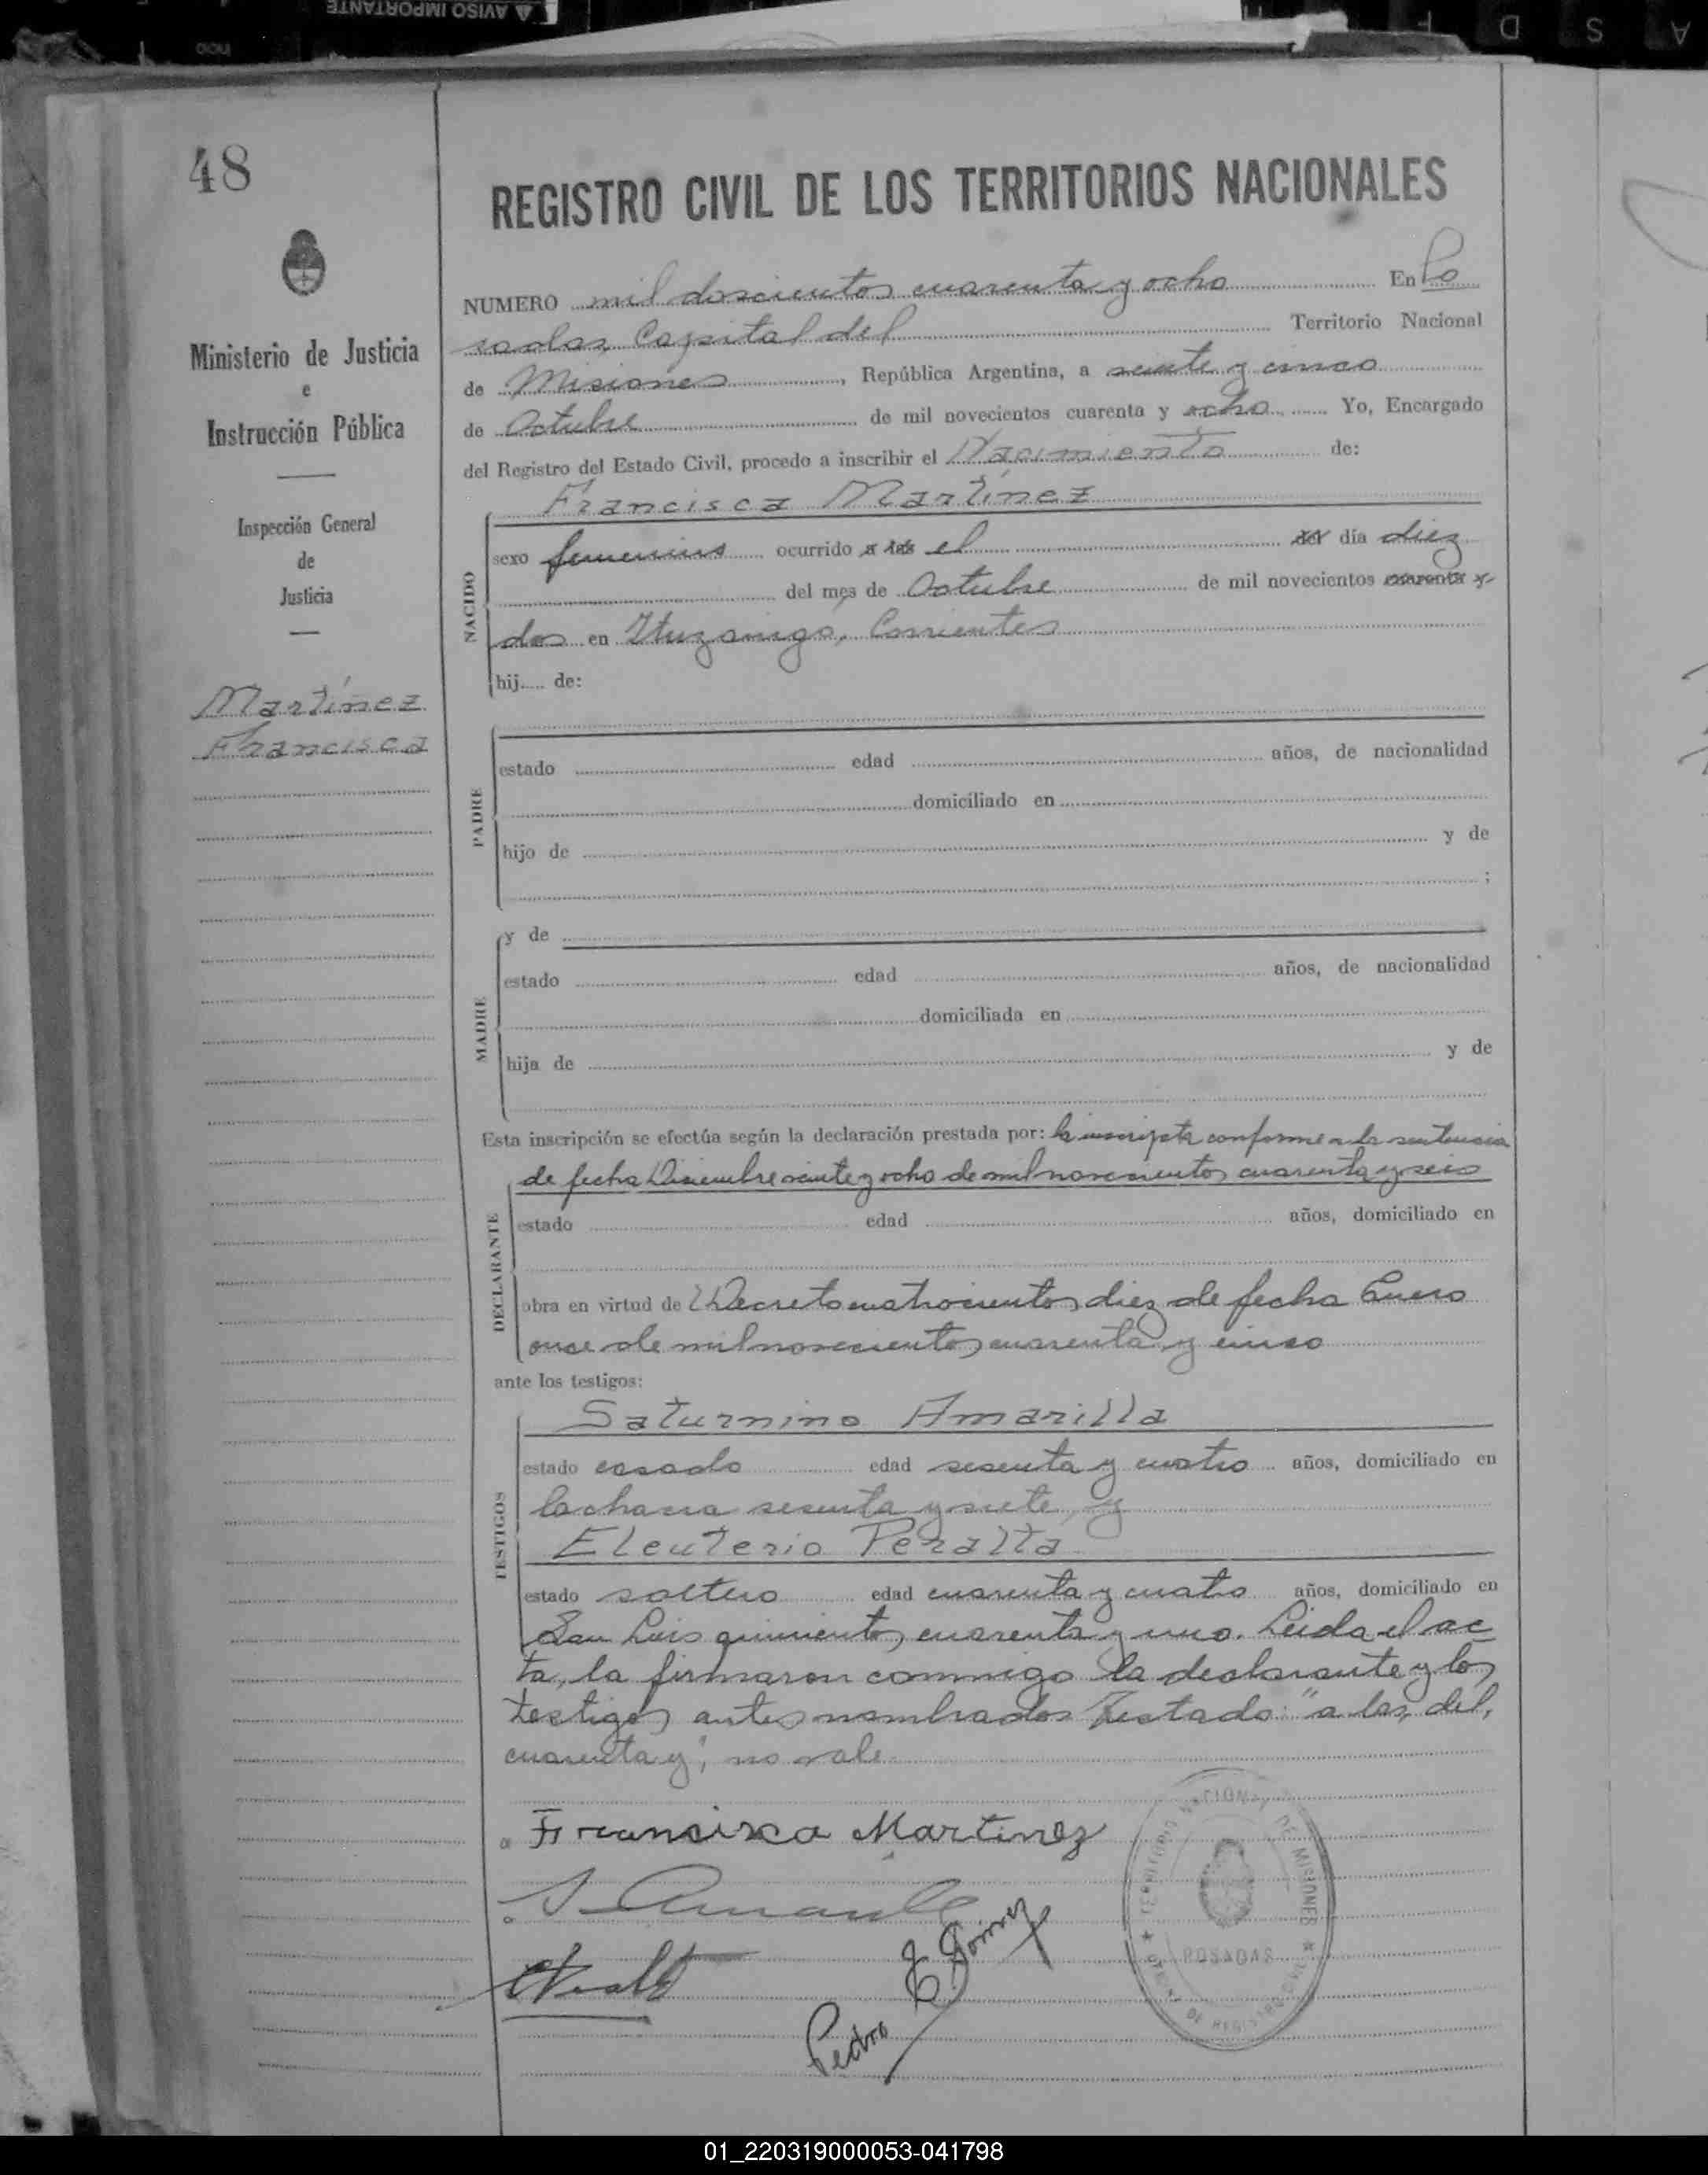 AVISO IMPORTANTE
Inicio
F D S A
48
REGISTRO CIVIL DE LOS TERRITORIOS NACIONALES
NUMERO mil doscientos cuarenta y ocho En Po
sadas, Capital del Territorio Nacional
de Misiones, República Argentina, a veinte y cinco
de Octubre de mil novecientos cuarenta y ocho Yo, Encargado
del Registro del Estado Civil, procedo a inscribir el Nacimiento de:
Francisca Martínez
NACIDO
sexo femenino ocurrido a las el del día diez
del mes de Octubre de mil novecientos cuarenta y
dos en Ituzaingó, Corrientes
hij..... de:
Ministerio de Justicia
e
Instrucción Pública
Inspección General
de
Justicia
Martínez
Francisca
PADRE
estado edad años, de nacionalidad
domiciliado en
hijo de y de
;
MADRE
y de
estado edad años, de nacionalidad
domiciliada en
hija de y de
Esta inscripción se efectúa según la declaración prestada por: la inscripta conforme a la sentencia
de fecha Diciembre veinte y ocho de mil novecientos cuarenta y seis
DECLARANTE
estado edad años, domiciliado en
obra en virtud de Decreto cuatrocientos diez de fecha Enero
once de mil novecientos cuarenta y cinco
ante los testigos:
TESTIGOS
Saturnino Amarilla
estado casado edad sesenta y cuatro años, domiciliado en
la chacra sesenta y siete y
Eleuterio Peralta
estado soltero edad cuarenta y cuatro años, domiciliado en
San Luis quinientos cuarenta y uno. Leida el ac
ta, la firmaron conmigo la declarante y los
testigos antes nombrados Testado: "a las, del,
cuarenta y", no vale
Francisca Martinez
S. Amarilla
Pedro E Gomez
TERRITORIO NACIONAL DE MISIONES
POSADAS
OFICINA DE REGISTRO CIVIL
01_220319000053-041798